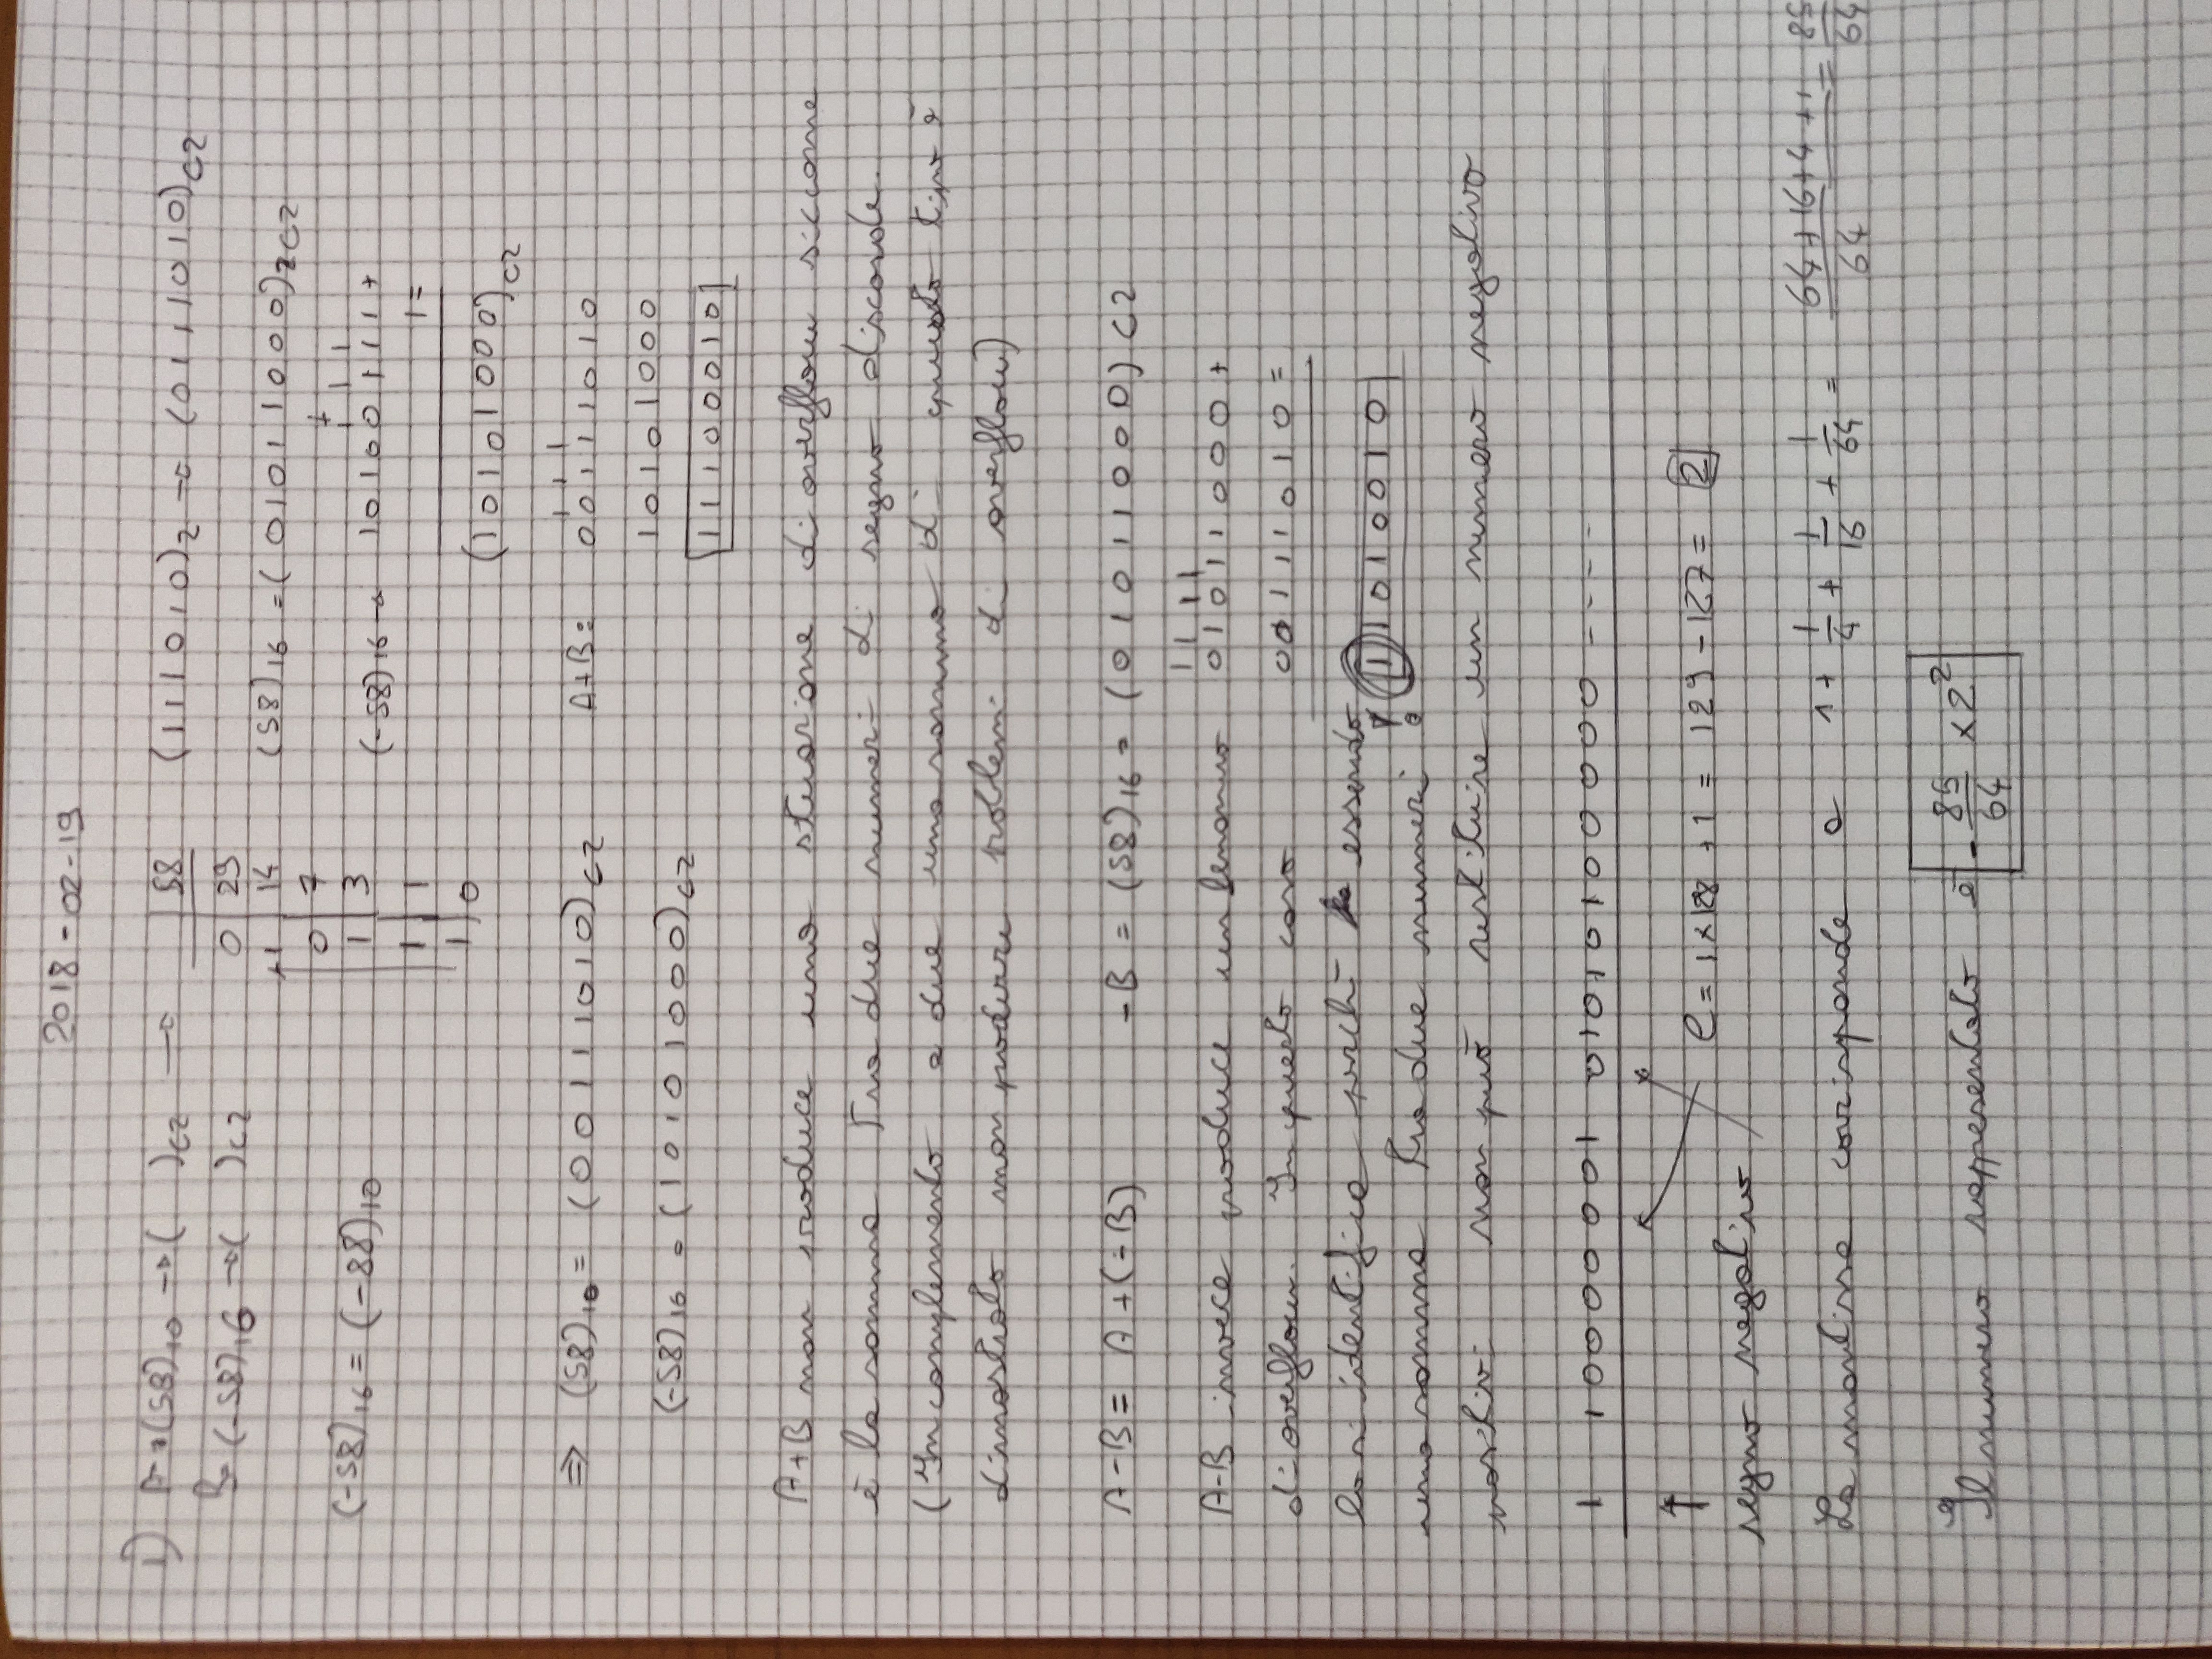 2018-02-19
1) A=(58)10 → ( )C2 → 58 (111010)2 → (0111010)C2
B=(-58)16 → ( )C2 0 29
1 14 (58)16 = (01011000)2C2
0 7
(-58)16 = (-88)10 1 3 1 1 1
(-58)16 → 10100111+
1 1 1=
1 0 (10101000)C2
1 1 1
⇒ (58)10 = (00111010)C2 A+B= 00111010
(-58)16 = (10101000)C2 10101000
11100010
A+B non produce una situazione di overflow siccome
è la somma tra due numeri di segno discorde.
(In complemento a due una somma di questo tipo è
dimostrato non produrre problemi di overflow)
A-B = A+(-B) -B = (58)16 = (01011000)C2
1 1 1 1
A-B invece produce un fenomeno 01011000+
di overflow. In questo caso 00111010=
lo si identifica perché essendo ! 11010010
una somma tra due numeri
positivi non può restituire un numero negativo
1 10000001 01010100000----
↑ e = 1×128 + 1 = 129 - 127 = 2
segno negativo
La mantissa corrisponde a 1 + 1/4 + 1/16 + 1/64 = 64+16+4+1/64 = 85/64
Il numero rappresentato è - 85/64 × 2²